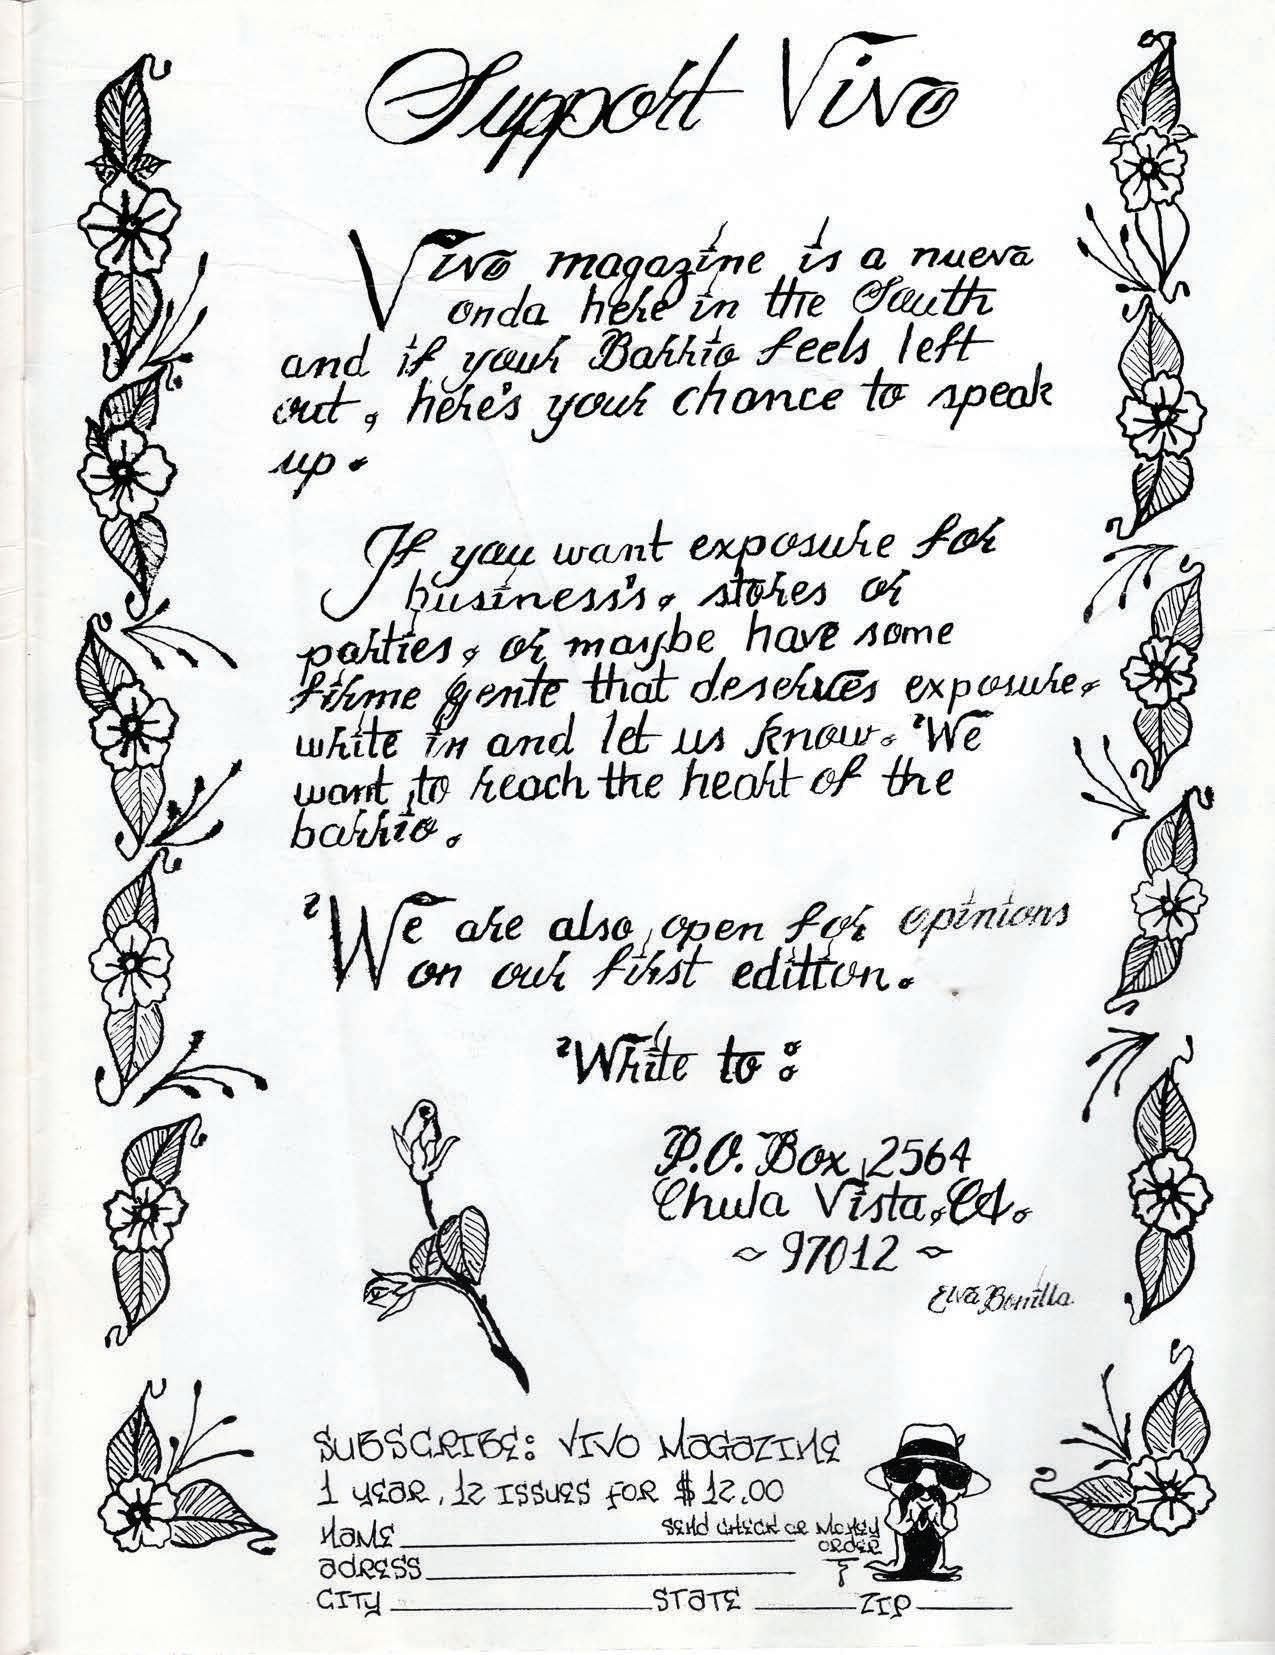 Support Vivo
Vivo magazine is a nueva
onda here in the South
and if your Barrio feels left
out, here's your chance to speak
up.
If you want exposure for
business's, stores or
parties, or maybe have some
firme gente that deserves exposure,
write in and let us know. We
want to reach the heart of the
barrio.
We are also open for opinions
on our first edition.
Write to:
P.O. Box 2564
Chula Vista, CA.
~ 97012 ~
Elva Bonilla
SUBSCRIBE: VIVO MAGAZINE
1 YEAR, 12 ISSUES FOR $12.00
SEND CHECK OR MONEY
ORDER
NAME
ADRESS
CITY STATE ZIP